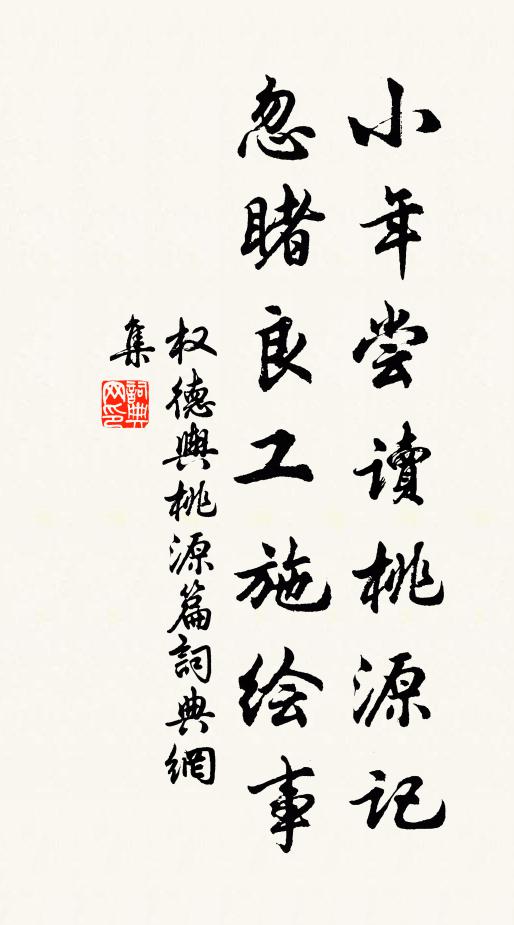 小年尝读桃源记
忽睹良工施绘事
权德舆桃源篇词典網
集
詞典
网印